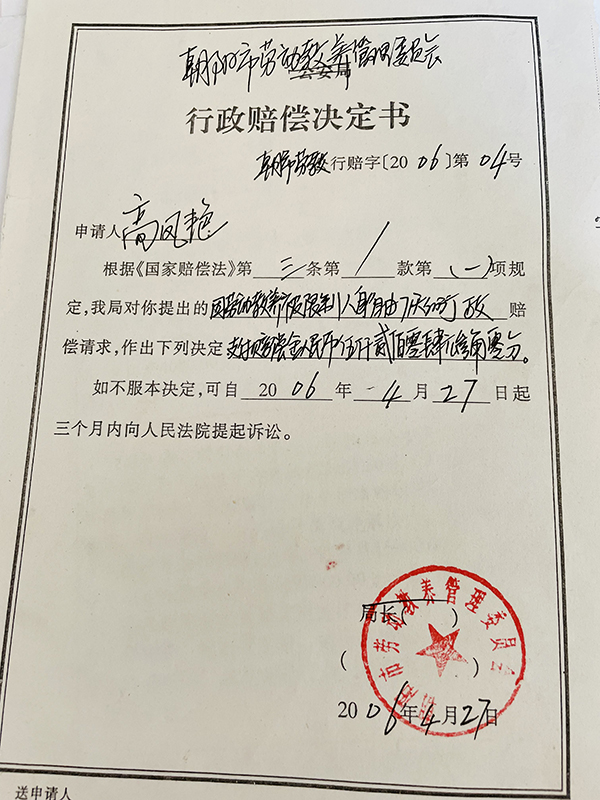 朝阳市劳动教养管理委员会
公安局
行政赔偿决定书
朝阳劳教行赔字〔2006〕第04号
申请人高凤艳
根据《国家赔偿法》第三条第/款第(一)项规
定,我局对你提出的因劳动教养被限制人身自由 赔
偿请求,作出下列决定支付赔偿金人民币伍仟贰佰零肆元 角零分。
如不服本决定,可自2006年4月27日起
三个月内向人民法院提起诉讼。
局长( )
( )
2006年4月27日
市劳动教养管理委员会
送申请人